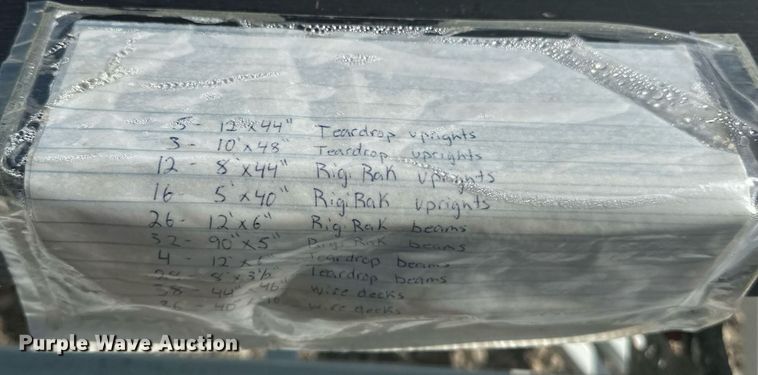 5 - 12'x44" Teardrop uprights
3 - 10'x48" Teardrop uprights
12 - 8'x44" Rigi Rak uprights
16 5'x40" Rigi Rak uprights
26 - 12'x6" Rig Rak beams
32 - 90"x5" Rigi Rak beams
4 - 12' x Teardrop beams
8'x3½" Teardrop beams
38 44" 46" wire decks
36 - 40" wire decks
Purple Wave Auction